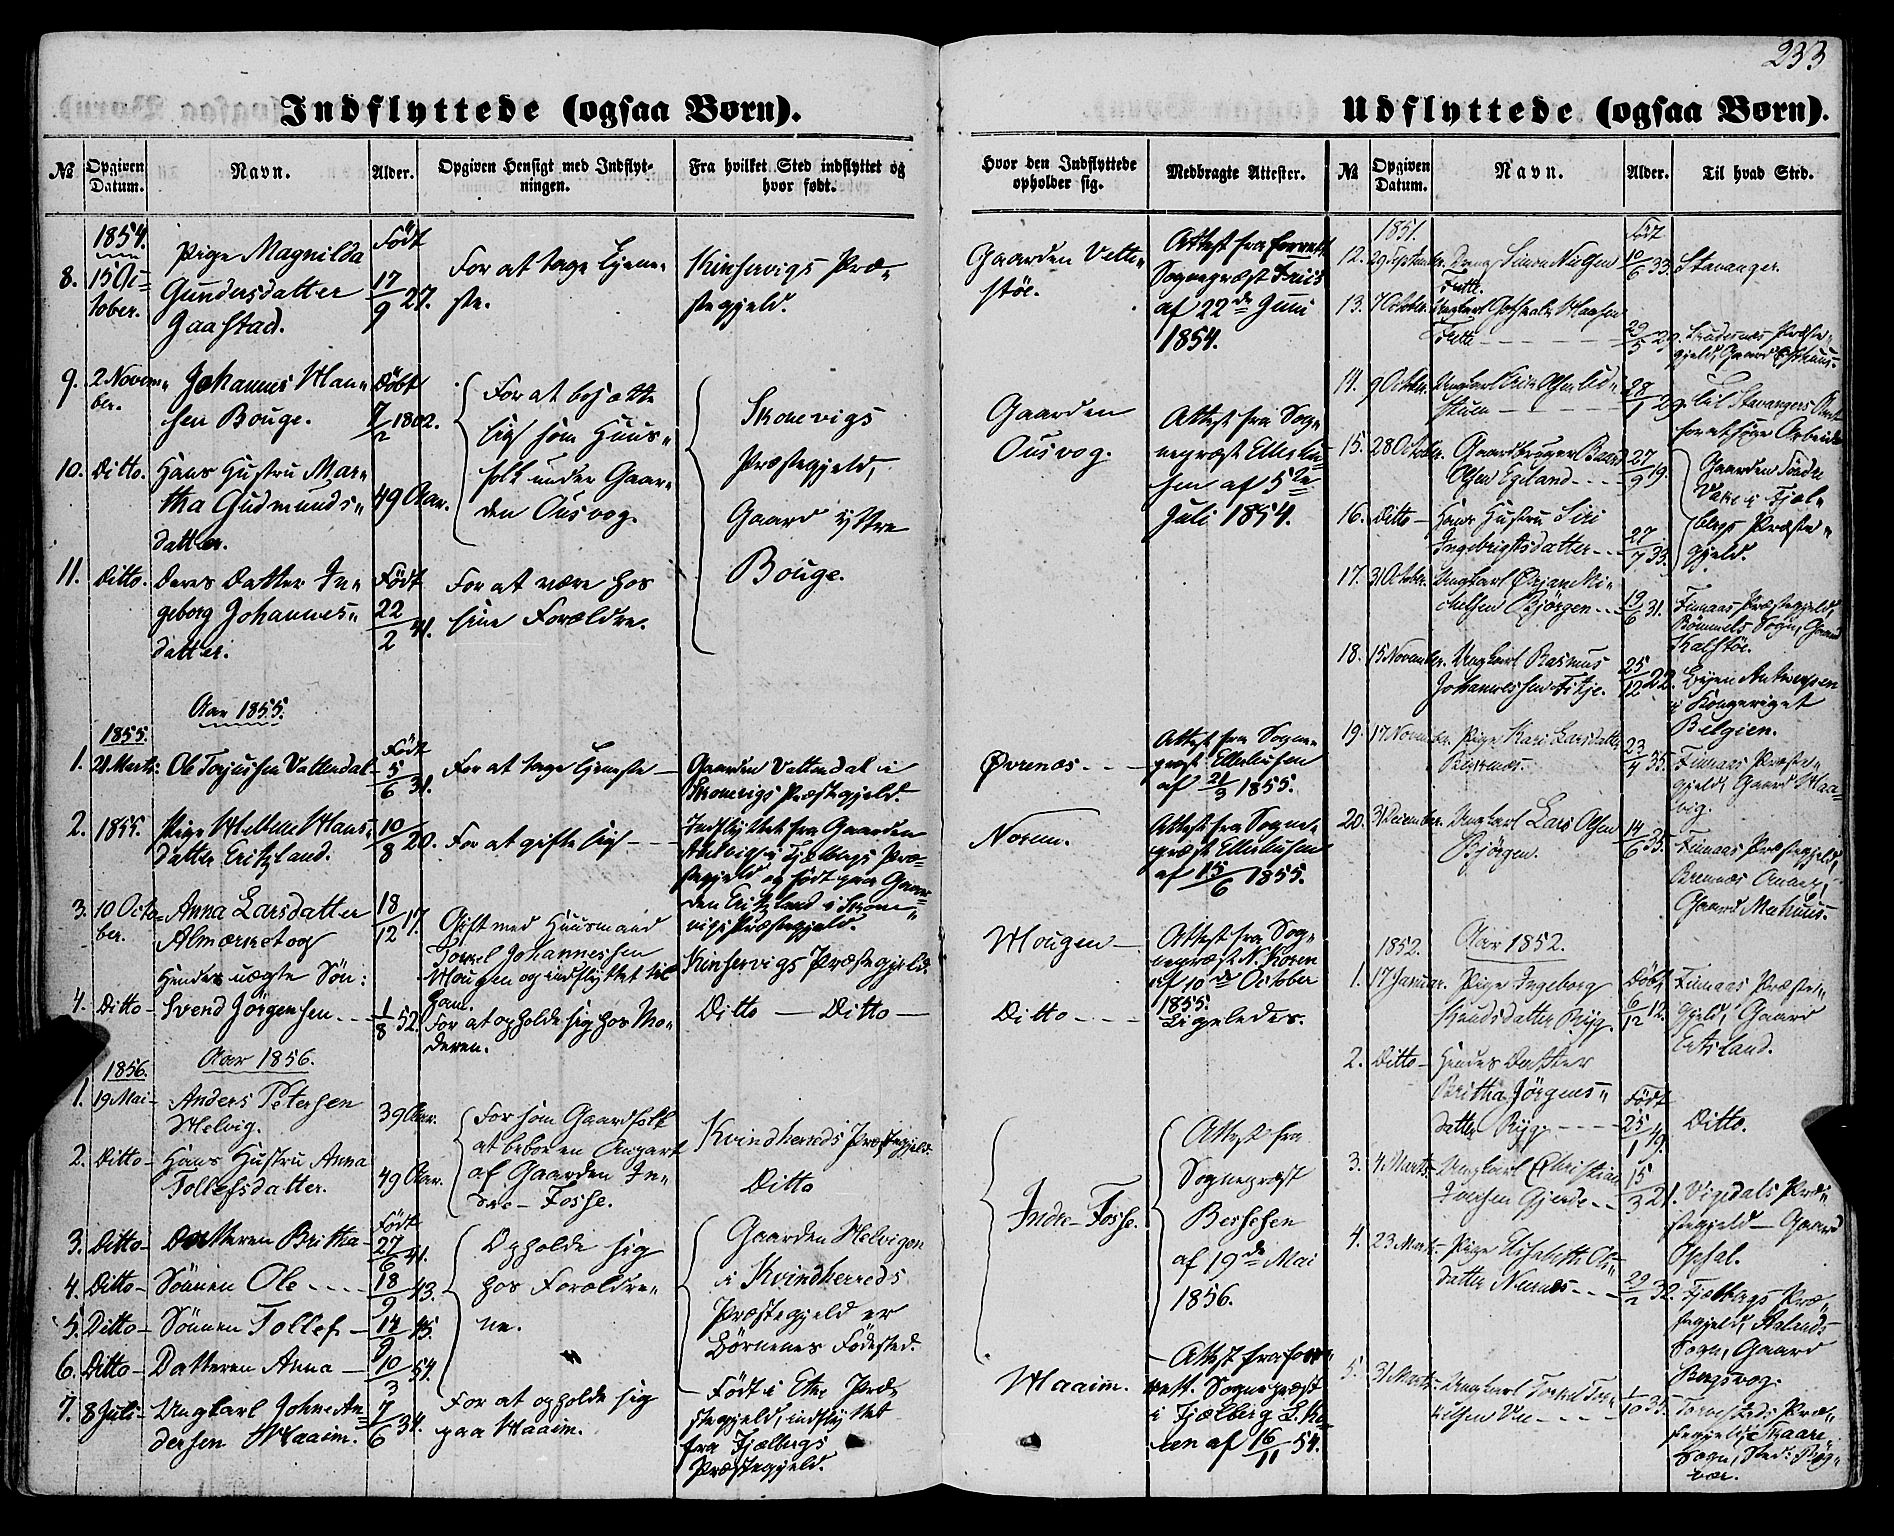 233
Indflyttede (ogsaa Børn).
№
Opgiven Datum.
Navn.
Alder.
Opgiven Hensigt med Indflyt-
ningen.
Fra hvilket Sted indflyttet og
hvor født.
Hvor den Indflyttede
opholder sig.
Medbragte Attester.
1854.
8. 15 Oc-
tober.
Pige Magnilda
Gundersdatter
Gaastad.
Født
17/9 27.
For at tage Tjene-
ste.
Kinservigs Præ-
stegjeld.
Gaarden Vette-
stöe.
Attest fra forrett.
Sognepræst Friis
af 22de Juni
1854.
9. 2 Novem-
ber.
Johannes Han-
sen Bouge.
Döbt
7/2 1802.
For at besætte
sig som Huus-
folk under Gaar-
den Ousvog.
Skonevigs
Præstegjeld,
Gaard yttre
Bouge.
Gaarden
Ousvog.
Attest fra Sog-
nepræst Ellefu-
sen af 5te
Juli 1854.
10. Ditto.
Hans Hustru Mar-
tha Gudmunds-
datter.
49 Aar.
11. Ditto.
Deres Datter In-
geborg Johannes-
datter.
Født
22/2 41.
For at være hos
sine Forældre.
Aar 1855.
1855.
1. 21 Marts.
Ole Torjussen Vattendal
Født
5/6 31.
For at tage Tjeneste
Gaarden Vattendal i
Skonevigs Præstegjeld.
Øvrenæs.
Attest fra Sogne-
præst Ellefusen
af 21/3 1855.
2. 1855.
Pige Hans-
datter Eritzland.
10/8 20.
For at gifte sig
Indflyttet fra Gaarden
i Fjelbergs Præ-
stegjeld og født paa Gaar-
den Eritzland i Skone-
vigs Præstegjeld.
Norem.
Attest fra Sogne-
præst Ellefusen
af 15/6 1855.
3. 10 Octo-
ber.
Anna Larsdatter
Almerket og
18/12 17.
Gift med Huusmand
Johannessen
Hougen og indflyttet til
ham.
Kinservigs Præstegjeld.
Hougen
Attest fra Sog-
nepræst N. Koren
af 10de October
1855.
Hendes uægte Sön:
4. Ditto
Svend Jörgensen.
1/8 52.
For at opholde sig hos Mo-
deren.
Ditto — Ditto
Ditto
Ligeledes.
Aar 1856.
1856.
1. 19 Mai
Anders Petersen
Helvig.
39 Aar.
For som Gaardfolk
at beboe en Anpart
af Gaarden In-
dre-Fosse.
Kvindherreds Præstegjeld.
Indre-Fosse.
Attest fra
Sognepræst
Bessesen
af 19de Mai
1856.
2. Ditto
Hans Hustru Anna
Tollefsdatter.
49 Aar.
Ditto
3. Ditto
Datteren Britha
Født
27/6 41.
Opholde sig
hos Forældre-
ne.
Gaarden Helvigen
i Kvindherreds
Præstegjeld er
Børnenes Födested.
4. Ditto
Sönnen Ole
18/9 43.
5. Ditto
Sönnen Tollef
14/9 45.
6. Ditto
Datteren Anna
10/3 54.
7. 8 Juli
Ungkarl Johne An-
dersen Haaim.
7/6 34.
For at opholde sig
paa Haaim.
Født i Etne Præ-
stegjeld, indflyttet
fra Fjelbergs
Præstegjeld.
Haaim.
Attest fra for-
rett. Sognepræst
i Fjælberg L. Ko-
ren af 16/11 54.
Udflyttede (ogsaa Børn).
№
Opgiven Datum.
Navn.
Alder.
Til hvad Sted.
1851.
12. 29 September.
Dreng Simon Nielsen
Fætte.
Født
10/6 33.
Stavanger.
13. 7 October.
Ungkarl Gotskalk Hansen
Fætte
29/5 29.
Præste-
gjeld, Gaard
14. 9 October.
Ungkarl
28/1 29.
Til Stavangers Amt
for at söge Arbeide
15. 28 October.
Gaardbruger Baard
Olsen Egeland
27/9 19.
Gaarden Söndre
Vake i Fjel-
bergs Præste-
gjeld.
16. Ditto
Hans Hustru Siri
Ingebrigtsdatter
27/7 33.
17. 31 October.
Ungkarl Örjan Mi-
chelsen Bjørgen
19/6 31.
Finaas Præstegjeld,
Bömmels Sogn, Gaard
Kalstöe.
18. 15 November.
Ungkarl Rasmus
Johannessen Fitje.
25/12 22.
Byen Antwerpen
i Kongeriget
Belgien.
19. 17 November.
Pige Kari Larsdatter
23/4 35.
Finaas Præste-
gjeld, Gaard Haa-
vig.
20. 31 December.
Ungkarl Lars Olsen
Bjørgen.
14/6 35.
Finaas Præstegjeld,
Bremnæs Annex,
Gaard
Aar 1852.
1852.
1. 17 Januar.
Pige Ingeborg
Knudsdatter Ryg.
Döbt
6/12 12.
Finaas Præste-
gjeld, Gaard
Eitsland.
2. Ditto
Hendes Datter
Britha Jörgens-
datter Ryg.
Født
25/1 49.
Ditto.
3. 4 Marts
Ungkarl Christian
Gjerde
15/3 21.
Vigedals Præ-
stegjeld — Gaard
Opsal.
4. 23 Marts
Pige Elisabeth Ols-
datter Nernæs
29/2 32.
Fjelbergs Præ-
stegjeld, Ølands
Sogn, Gaard
Bergsvog.
5. 31 Marts
Ungkarl
Vee
1/10 35.
Torvestads Præ-
stegjeld, Skaare
Sogn, Sted: Røg-
vær.